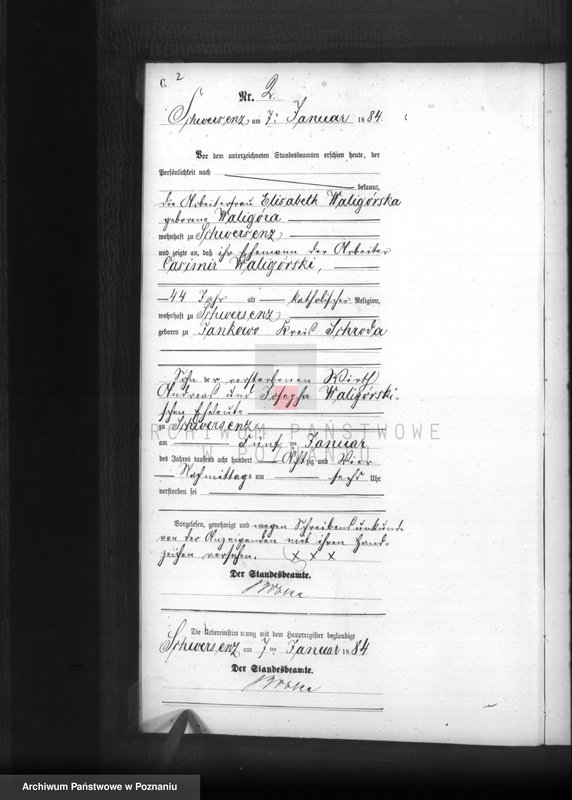 C. 2
Nr. 2.
Schwersenz am 7ten Januar 1884.
Vor dem unterzeichneten Standesbeamten erschien heute, der
Persönlichkeit nach
bekannt,
die Arbeiterfrau Elisabeth Waligórska
geborene Waligóra
wohnhaft zu Schwersenz
und zeigte an, daß ihr Ehemann der Arbeiter
Casimir Waligórski,
44 Jahr alt katholischer Religion,
wohnhaft zu Schwersenz
geboren zu Jankowo Kreis Schroda
Sohn der verstorbenen Wirth
Andreas und Josepha Waligórski-
schen Eheleute
zu Schwersenz
am Fünften Januar
des Jahres tausend acht hundert Achtzig und Vier
Nachmittags um sechs Uhr
verstorben sei
Vorgelesen, genehmigt und wegen Schreibensunkunde
von der Anzeigenden mit ihren Hand-
zeichen versehen. x x x
Der Standesbeamte.
Die Uebereinstimmung mit dem Hauptregister beglaubigt
Schwersenz am 7ten Januar 1884
Der Standesbeamte.
ARCHIWUM PAŃSTWOWE
W POZNANIU
Archiwum Państwowe w Poznaniu